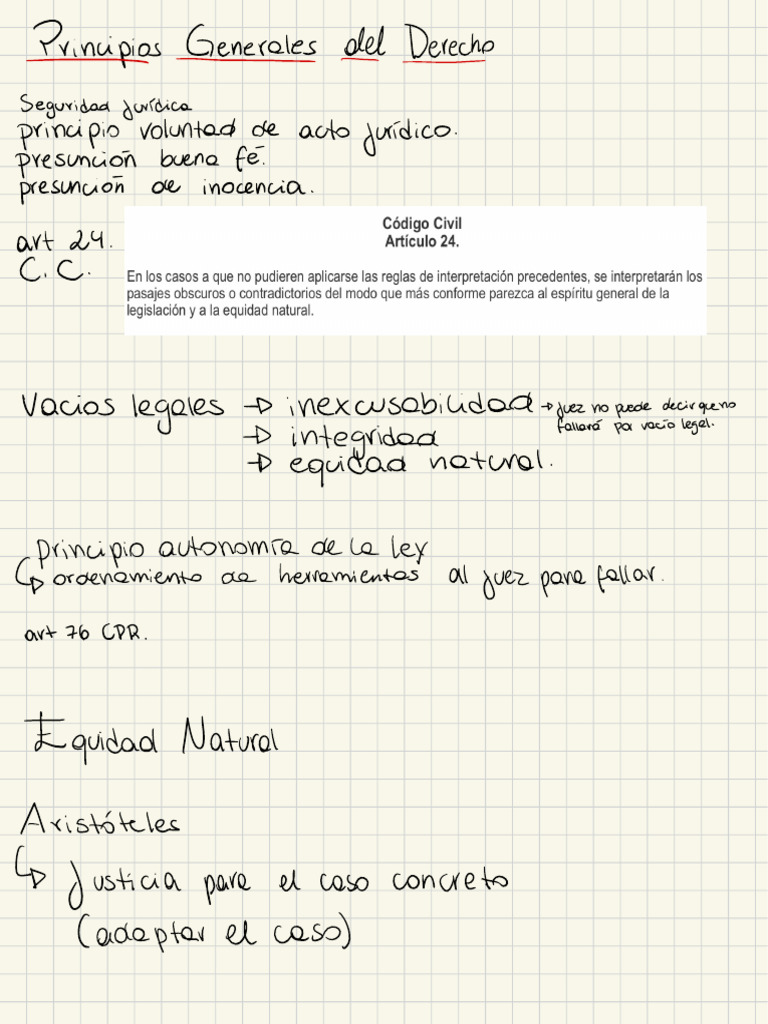 Principios Generales del Derecho
Seguridad jurídica
principio voluntad de acto jurídico.
presunción buena fé.
presunción de inocencia.
art 24.
C.C.
Código Civil
Artículo 24.
En los casos a que no pudieren aplicarse las reglas de interpretación precedentes, se interpretarán los
pasajes obscuros o contradictorios del modo que más conforme parezca al espíritu general de la
legislación y a la equidad natural.
Vacios legales → inexcusabilidad → juez no puede decir que no
fallará por vacío legal.
→ integridad
→ equidad natural.
Principio autonomía de la ley
↳ ordenamiento da herramientas al juez para fallar.
art 76 CPR.
Equidad Natural
Aristóteles
↳ Justicia para el caso concreto
(adaptar el caso)